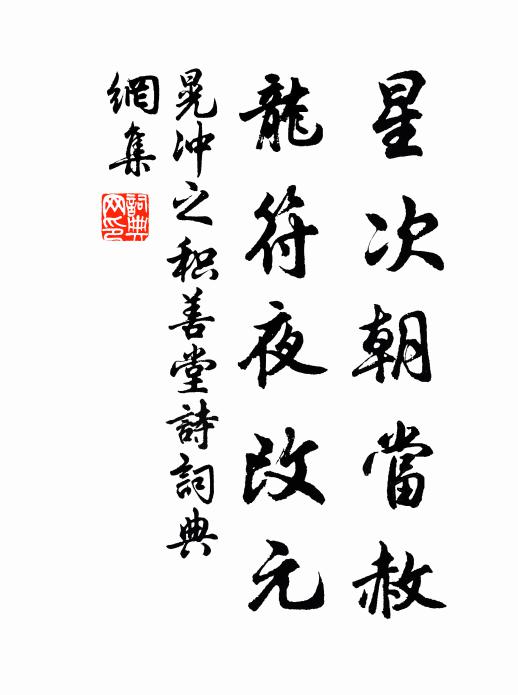 星次朝當赦
龍符夜改元
晁沖之积善堂詩詞典
網集
詞典
网印